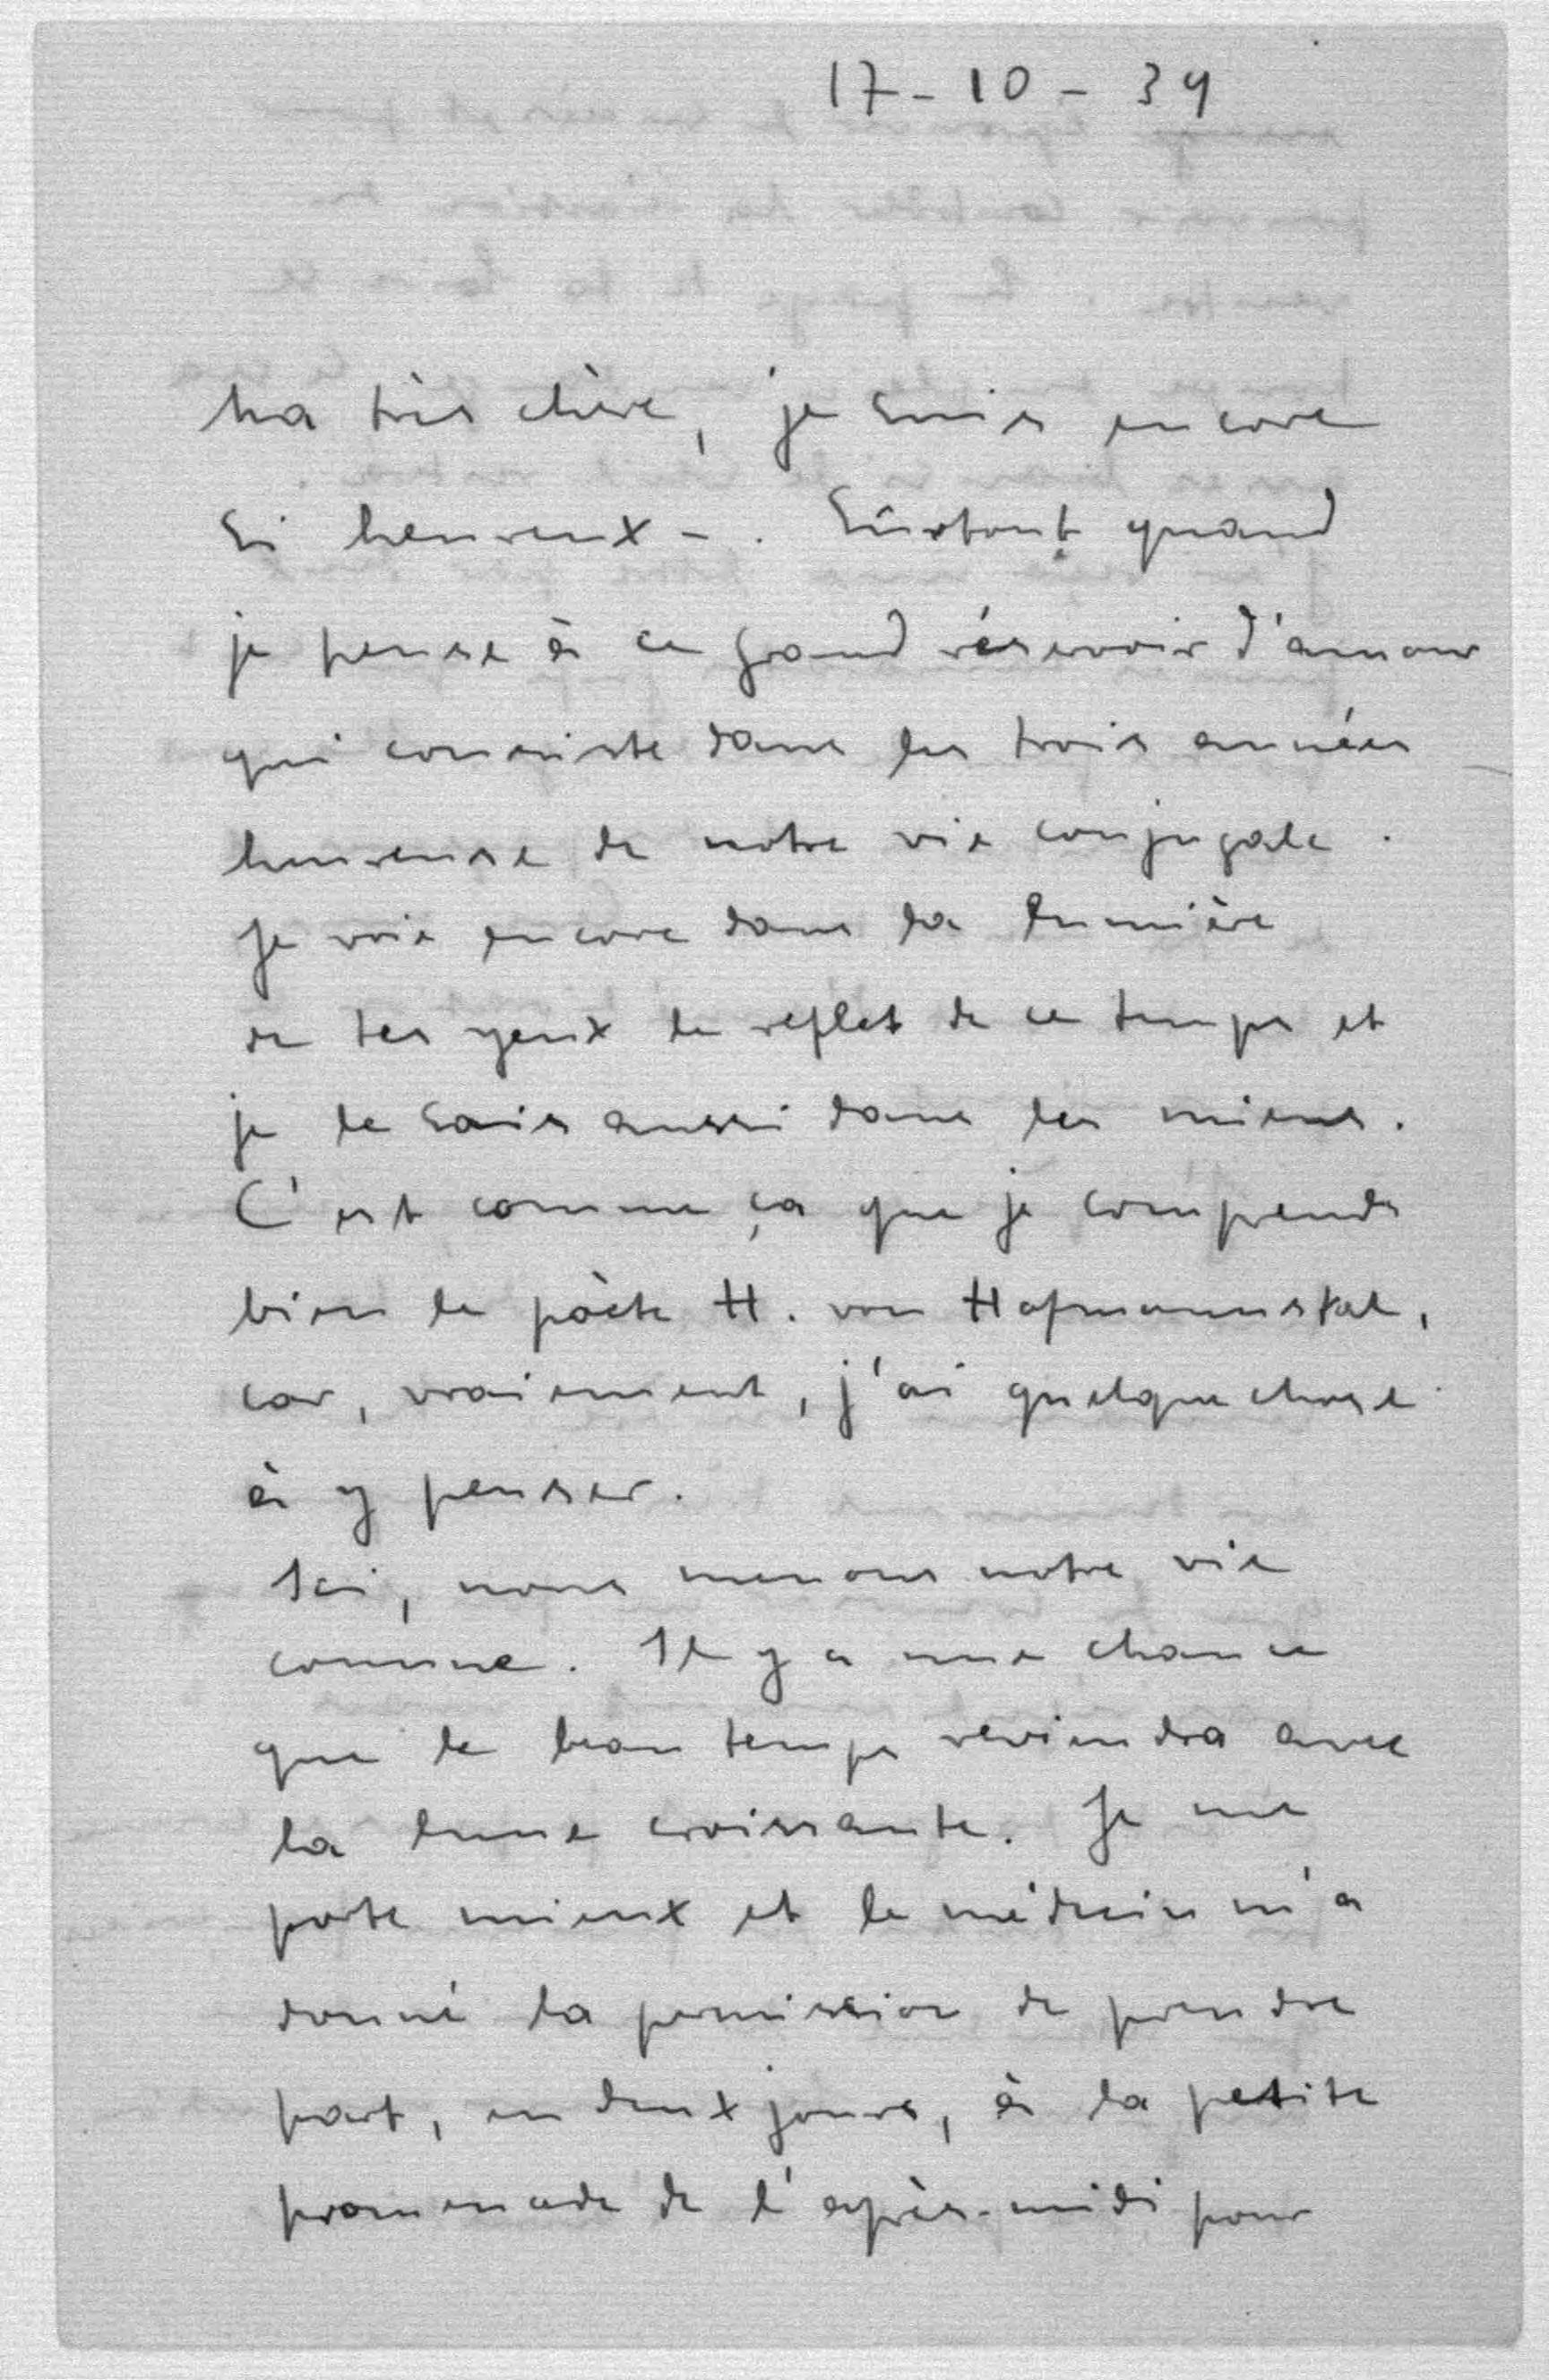 17-10-39
Ma très chère, je suis encore
si heureux-. Sûrtout quand
je pense à ce grand réservoir d'amour
qui consiste dans les trois années
heureuse de notre vie conjugale.
Je vois encore dans la lumière
de tes yeux le reflet de ce temps et
je le sais aussi dans les miens.
C'est comme ça que je comprends
bien le poète H. von Hofmannstal,
car, vraiement, j'ai quelque chose
à y penser.
Ici, nous menons notre vie
comune. Il y a une chance
que le beau temps reviendra avec
la lune croissante. Je me
porte mieux et le médecin m'a
donné la permission de prendre
part, en deux jours, à la petite
promenade de l'après-midi pour